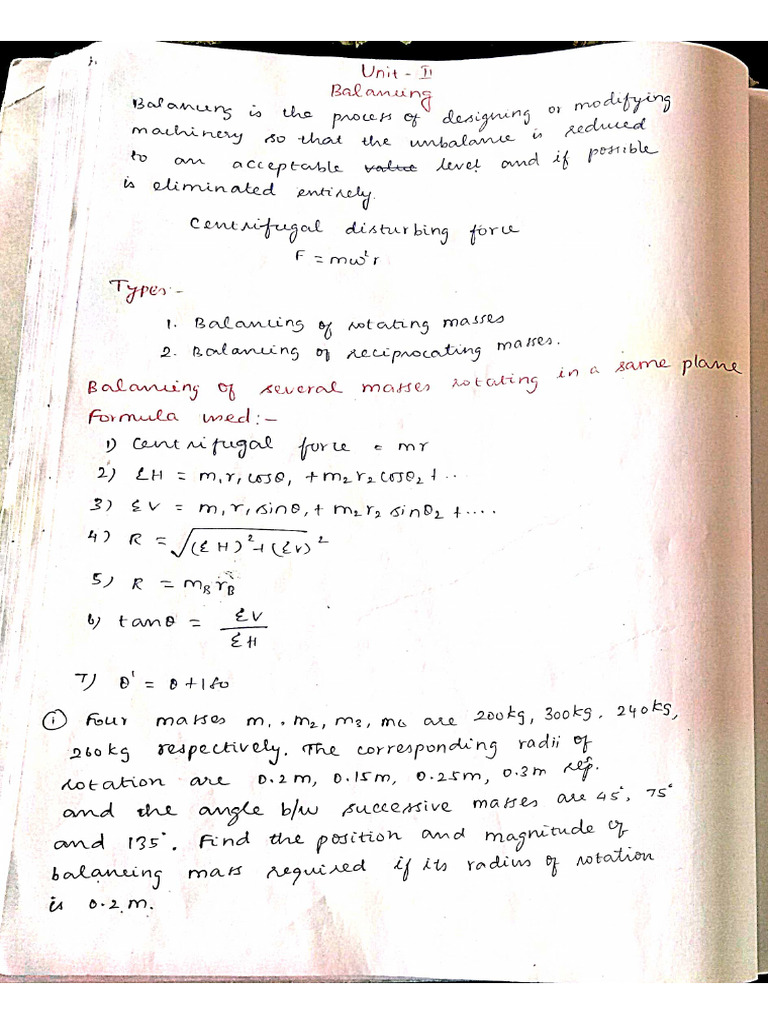 Unit - II
Balancing
Balancing is the process of designing or modifying
machinery so that the unbalance is reduced
to an acceptable value level and if possible
is eliminated entirely.
Centrifugal disturbing force
F = mω²r
Types:-
1. Balancing of rotating masses
2. Balancing of reciprocating masses.
Balancing of several masses rotating in a same plane
Formula used:-
1) Centrifugal force = mr
2) ΣH = m₁r₁cosθ₁ + m₂r₂cosθ₂ + ..
3) ΣV = m₁r₁sinθ₁ + m₂r₂sinθ₂ + ....
4) R = √(ΣH)² + (ΣV)²
5) R = m_B r_B
6) tanθ = ΣV / ΣH
7) θ' = θ + 180
① Four masses m₁, m₂, m₃, m₄ are 200kg, 300kg, 240kg,
260kg respectively. The corresponding radii of
rotation are 0.2m, 0.15m, 0.25m, 0.3m resp.
and the angle b/w successive masses are 45°, 75°
and 135°. Find the position and magnitude of
balancing mass required if its radius of rotation
is 0.2 m.